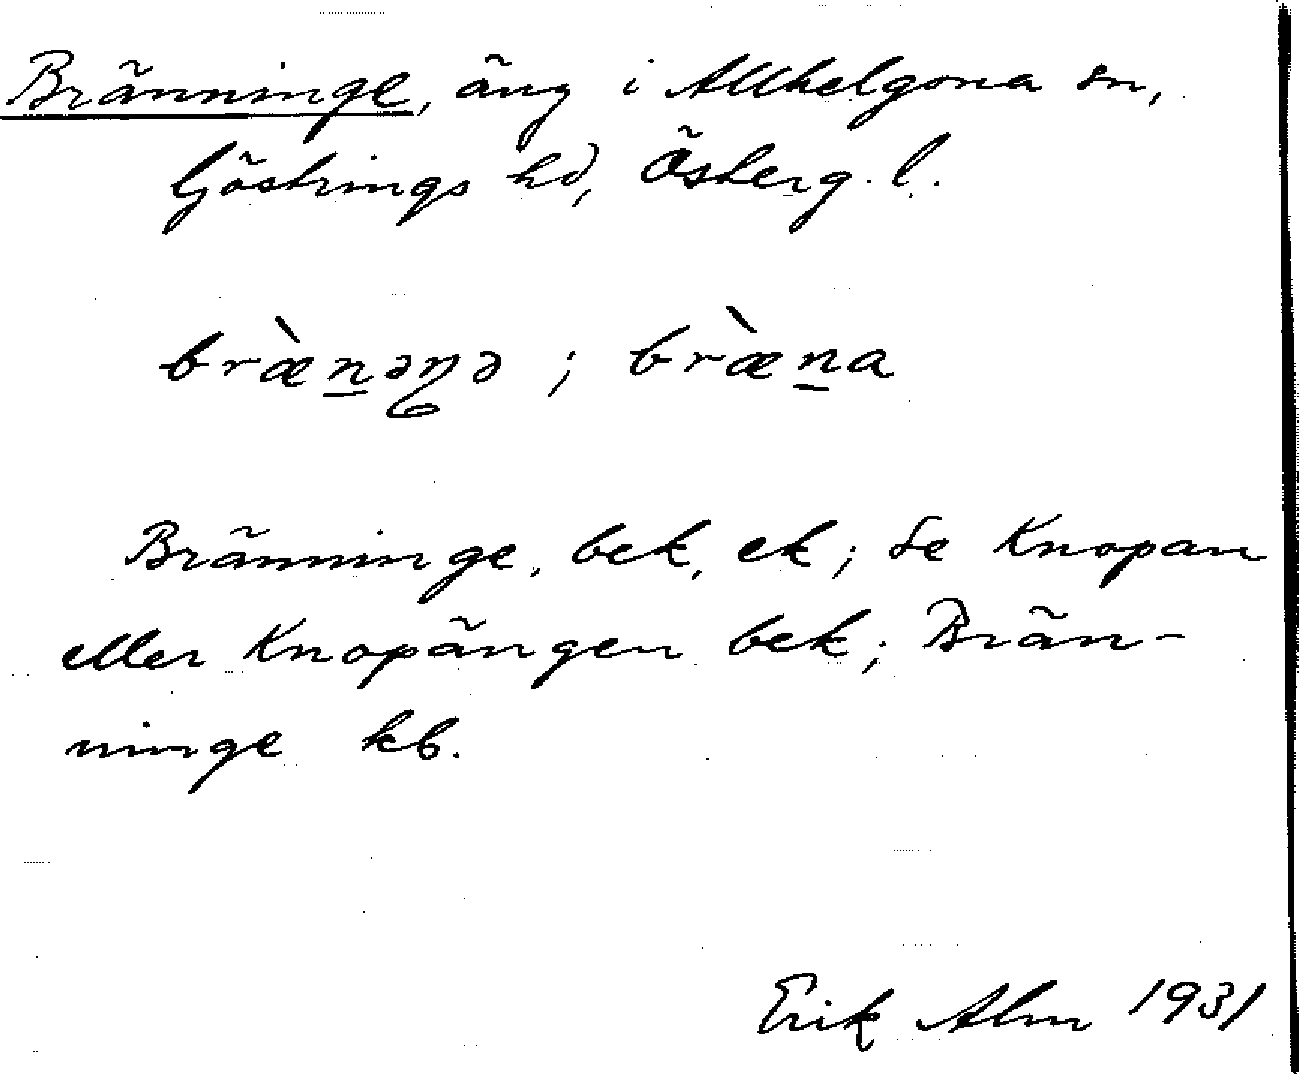 Bränninge, äng i Allhelgona sn,
Göstrings hd, Österg. l.
bræ̀n̲əŋə ; bræ̀n̲a
Bränninge, bek, ek; se Knopan
eller Knopängen bek; Brän-
ninge kb.
Erik Alm 1931